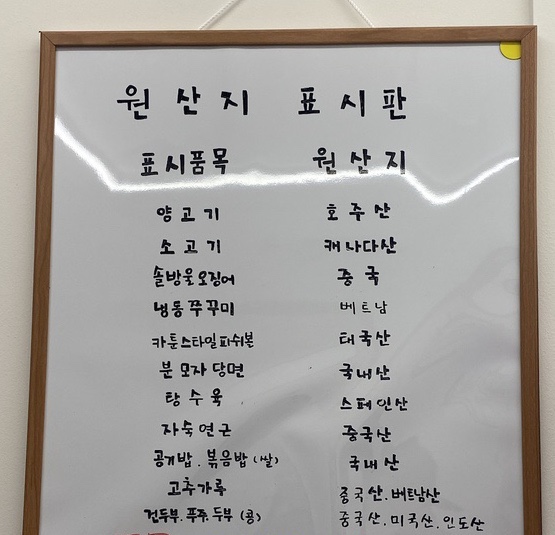 원산지 표시판
표시품목 원산지
양고기 호주산
소고기 캐나다산
솔방울오징어 중국
냉동쭈꾸미 베트남
카툰스타일피쉬본 태국산
분모자당면 국내산
탕수육 스페인산
자숙연근 중국산
공기밥.볶음밥(쌀) 국내산
고추가루 중국산.베트남산
건두부.푸주.두부(콩) 중국산.미국산.인도산